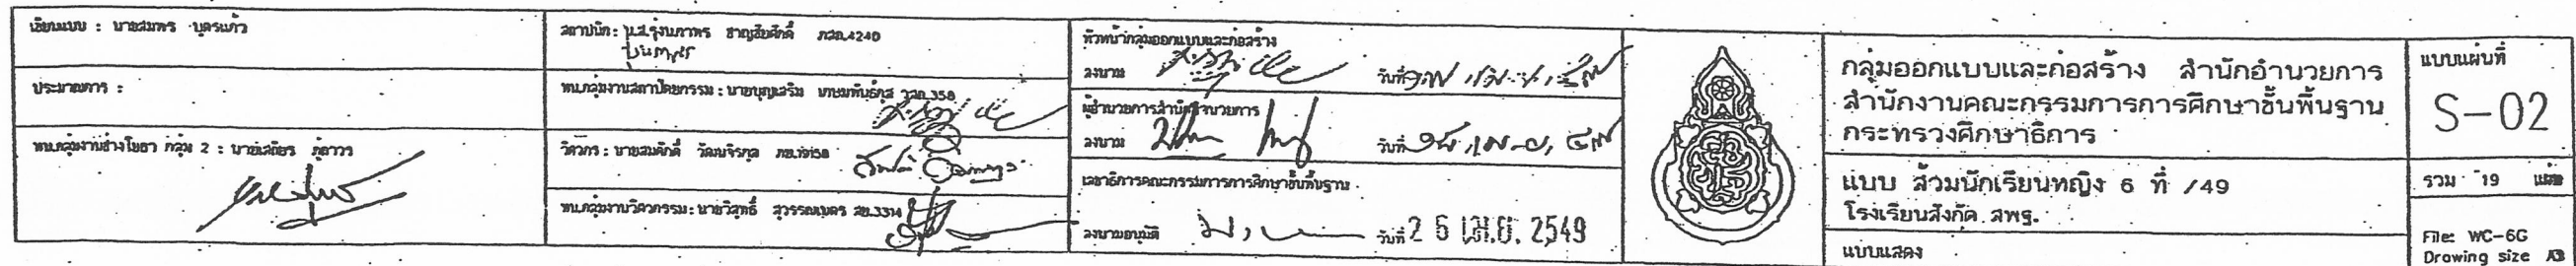 เขียนแบบ : นายสมพร บุตรแก้ว
ประมาณการ :
หน.กลุ่มงานช่างโยธา กลุ่ม 2 : นายเสถียร ภู่ถาวร
สถาปนิก : น.ส.รุ่งนภาพร ชาญชัยศักดิ์ ภสถ.4240
หน.กลุ่มงานสถาปัตยกรรม : นายบุญเสริม เกษมพันธ์กุล วสถ.358
วิศวกร : นายสมศักดิ์ วัฒนจิรกุล ภย.19158
หน.กลุ่มงานวิศวกรรม : นายวิสุทธิ์ สุวรรณเนตร สย.3314
หัวหน้ากลุ่มออกแบบและก่อสร้าง
ลงนาม วันที่
ผู้อำนวยการสำนักอำนวยการ
ลงนาม วันที่
เลขาธิการคณะกรรมการการศึกษาขั้นพื้นฐาน
ลงนามอนุมัติ วันที่ 2 6 เม.ย. 2549
กลุ่มออกแบบและก่อสร้าง สำนักอำนวยการ
สำนักงานคณะกรรมการการศึกษาขั้นพื้นฐาน
กระทรวงศึกษาธิการ
แบบ ส้วมนักเรียนหญิง 6 ที่ /49
โรงเรียนสังกัด สพฐ.
แบบแสดง
แบบแผ่นที่
S-02
รวม 19 แผ่น
File: WC-6G
Drawing size A3